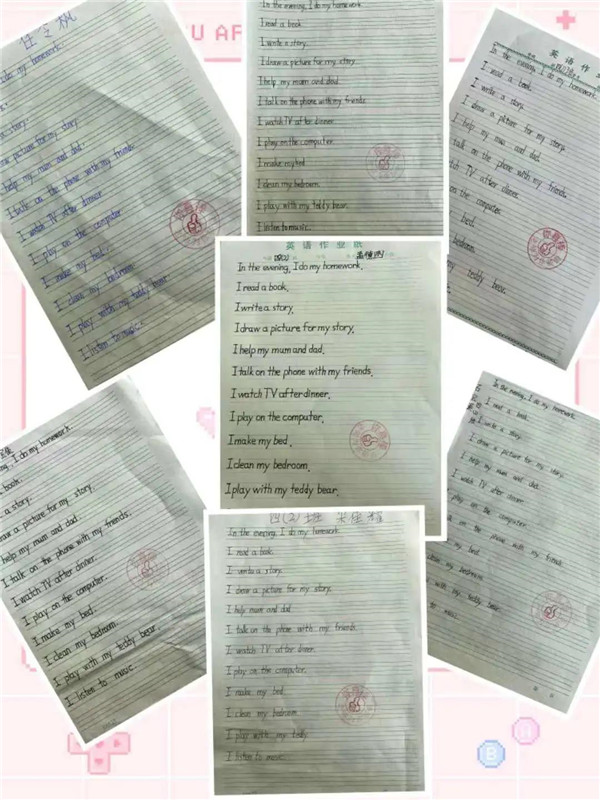 任令枫
do my homework.
a story.
picture for my story.
help my mum and dad.
I talk on the phone with my friends.
I watch TV after dinner.
I play on the computer.
I make my bed.
I clean my bedroom.
I play with my teddy bear.
I listen to music.
U AF
In the evening, I do my homework.
I read a book.
I write a story.
I draw a picture for my story.
I help my mum and dad.
I talk on the phone with my friends.
I watch TV after dinner.
I play on the computer.
I make my bed.
I clean my bedroom.
I play with my teddy bear.
I listen to music.
英语作业
In the evening, I do my homework.
I read a book.
I write a story.
I draw a picture for my story.
I help my mum and dad.
talk on the phone with my friends.
watch TV after dinner.
on the computer.
bed.
bedroom.
my teddy bear.
英语作业纸
In the evening, I do my homework.
I read a book.
I write a story.
I draw a picture for my story.
I help my mum and dad.
I talk on the phone with my friends.
I watch TV after dinner.
I play on the computer.
I make my bed.
I clean my bedroom.
I play with my teddy bear.
I do my homework.
a book.
a story.
draw a picture for my story.
help my mum and dad.
I talk on the phone with my friends.
I watch TV after dinner.
I play on the computer.
I make my bed.
I clean my bedroom.
I play with my teddy bear.
I listen to music.
四(2)班
In the evening, I do my homework.
I read a book.
I write a story.
I draw a picture for my story.
I help mum and dad.
I talk on the phone with my friends.
I watch TV after diner.
I play on the computer.
I make my bed.
I clean my bedroom.
I play with my teddy
I listen to music.
In the evening, I do my homework.
I read a book.
I write a story.
I draw a picture for my story.
I help my mum and dad.
I watch TV after dinner.
play on the computer.
on the phone with my friends.
my bed.
clean my bedroom.
with my teddy bear.
to music.
B
A